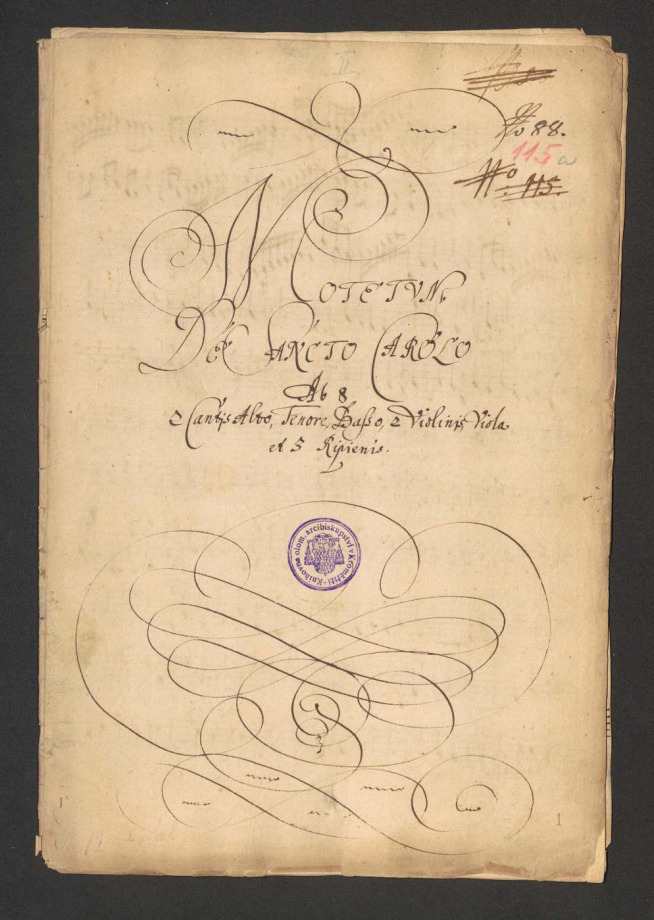 II.
No 88.
115a
No 115.
MOTETVM
DE SANCTO CAROLO
Ab 8
2 Cantis Alto, Tenore, Basso, 2 Violinis Viola
et 5 Ripienis.
Knihovna olom. arcibiskupství v Kroměříži
1